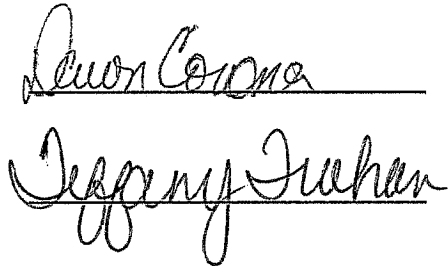 Devon Corona
Tiffany Truhan